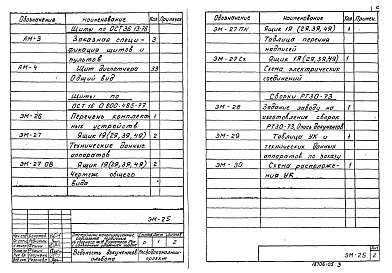 Обозначение Наименование Кол Примечан.
Щиты по ОСТ36.13-76
АН-3 Заказная специ- 2
фикация щитов и
пультов
АН-4 Щит диспетчера 33
Общий вид
Щиты по
ОСТ 16 0.800-485-77
ЭМ-26 Перечень комплект- 1
ных устройств
ЭМ-27 Ящик 1Я(29,39,49) 2
Технические данные
аппаратов
ЭМ-27 ОВ Ящик 1Я(29,39,49) 2
Чертеж общего
вида
ЭМ-25
Р 1 2
Ведомость документов
Обозначение Наименование Кол Примеч.
ЭМ-27 ПН Ящик 1Я (29,39,49) 1
Таблица перечня
надписей
ЭМ-27 Сх Ящик 1Я (29,39,49) 1
Схема электрических
соединений
Сборки РТЗО-73
ЭМ-28 Задание заводу на 1
изготовление сборок
РТЗО-73.
ЭМ-29 Таблица УК и 1
технических данных
аппаратов по заказу
ЭМ-30 Схема располože-
ния УК
ЭМ-25
2